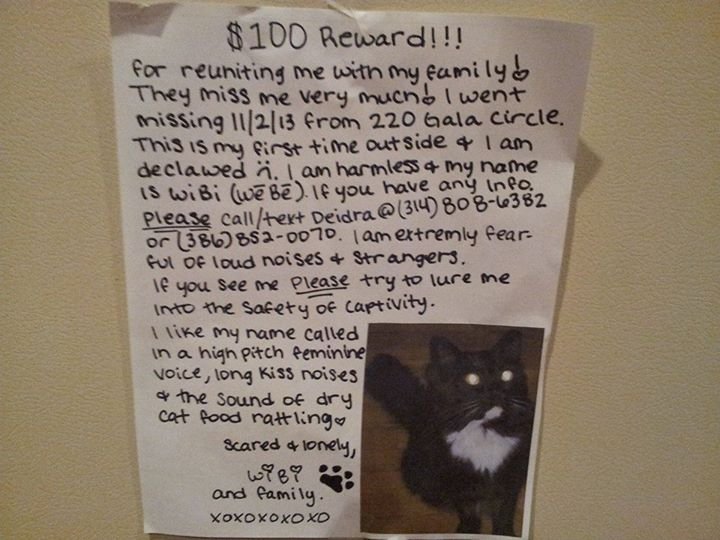 $100 Reward!!!
for reuniting me with my family!
They miss me very much! I went
missing 11/2/13 from 220 Gala Circle.
This is my first time outside & I am
declawed :(. I am harmless & my name
is WiBi (wē Bē). If you have any info.
Please call/text Deidra @ (314) 808-6382
or (386) 852-0070. I am extremly fear-
ful of loud noises & strangers.
If you see me Please try to lure me
into the safety of captivity.
I like my name called
in a high pitch feminine
voice, long kiss noises
& the sound of dry
cat food rattling♡
Scared & lonely,
WiBi
and family.
XOXOXOXOXO